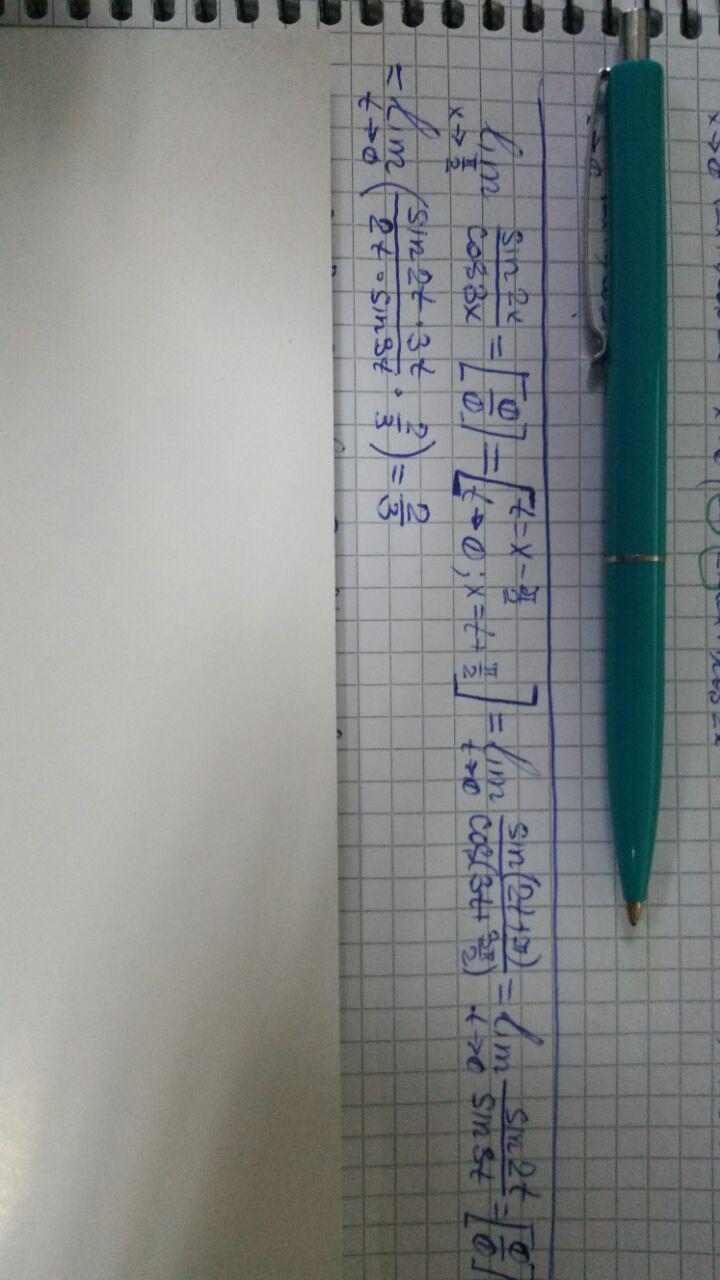 lim x→π/2 sin2x/cos3x = [0/0] = [t = x - π/2 t→0; x = t + π/2] = lim t→0 sin(2t+π)/cos(3t+3π/2) = lim t→0 sin2t/sin3t = [0/0]
= lim t→0 (sin2t·3t/2t·sin3t · 2/3) = 2/3